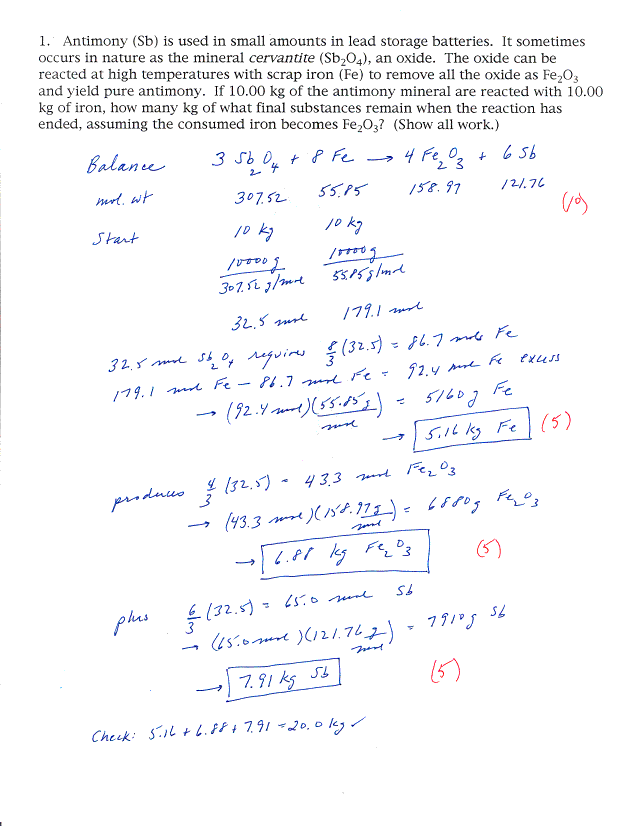 1. Antimony (Sb) is used in small amounts in lead storage batteries. It sometimes
occurs in nature as the mineral cervantite (Sb₂O₄), an oxide. The oxide can be
reacted at high temperatures with scrap iron (Fe) to remove all the oxide as Fe₂O₃
and yield pure antimony. If 10.00 kg of the antimony mineral are reacted with 10.00
kg of iron, how many kg of what final substances remain when the reaction has
ended, assuming the consumed iron becomes Fe₂O₃? (Show all work.)
Balance 3 Sb₂O₄ + 8 Fe → 4 Fe₂O₃ + 6 Sb
mol. wt 307.52 55.85 158.97 121.76 (10)
Start 10 kg 10 kg
10000 g / 307.52 g/mol 10000 g / 55.85 g/mol
32.5 mol 179.1 mol
32.5 mol Sb₂O₄ requires 8/3 (32.5) = 86.7 mols Fe
179.1 mol Fe - 86.7 mol Fe = 92.4 mol Fe excess
→ (92.4 mol)(55.85 g/mol) = 5160 g Fe
→ 5.16 kg Fe (5)
produces 4/3 (32.5) = 43.3 mol Fe₂O₃
→ (43.3 mol)(158.97 g/mol) = 6880 g Fe₂O₃
→ 6.88 kg Fe₂O₃ (5)
plus 6/3 (32.5) = 65.0 mol Sb
→ (65.0 mol)(121.76 g/mol) = 7910 g Sb
→ 7.91 kg Sb (5)
Check: 5.16 + 6.88 + 7.91 = 20.0 kg ✓